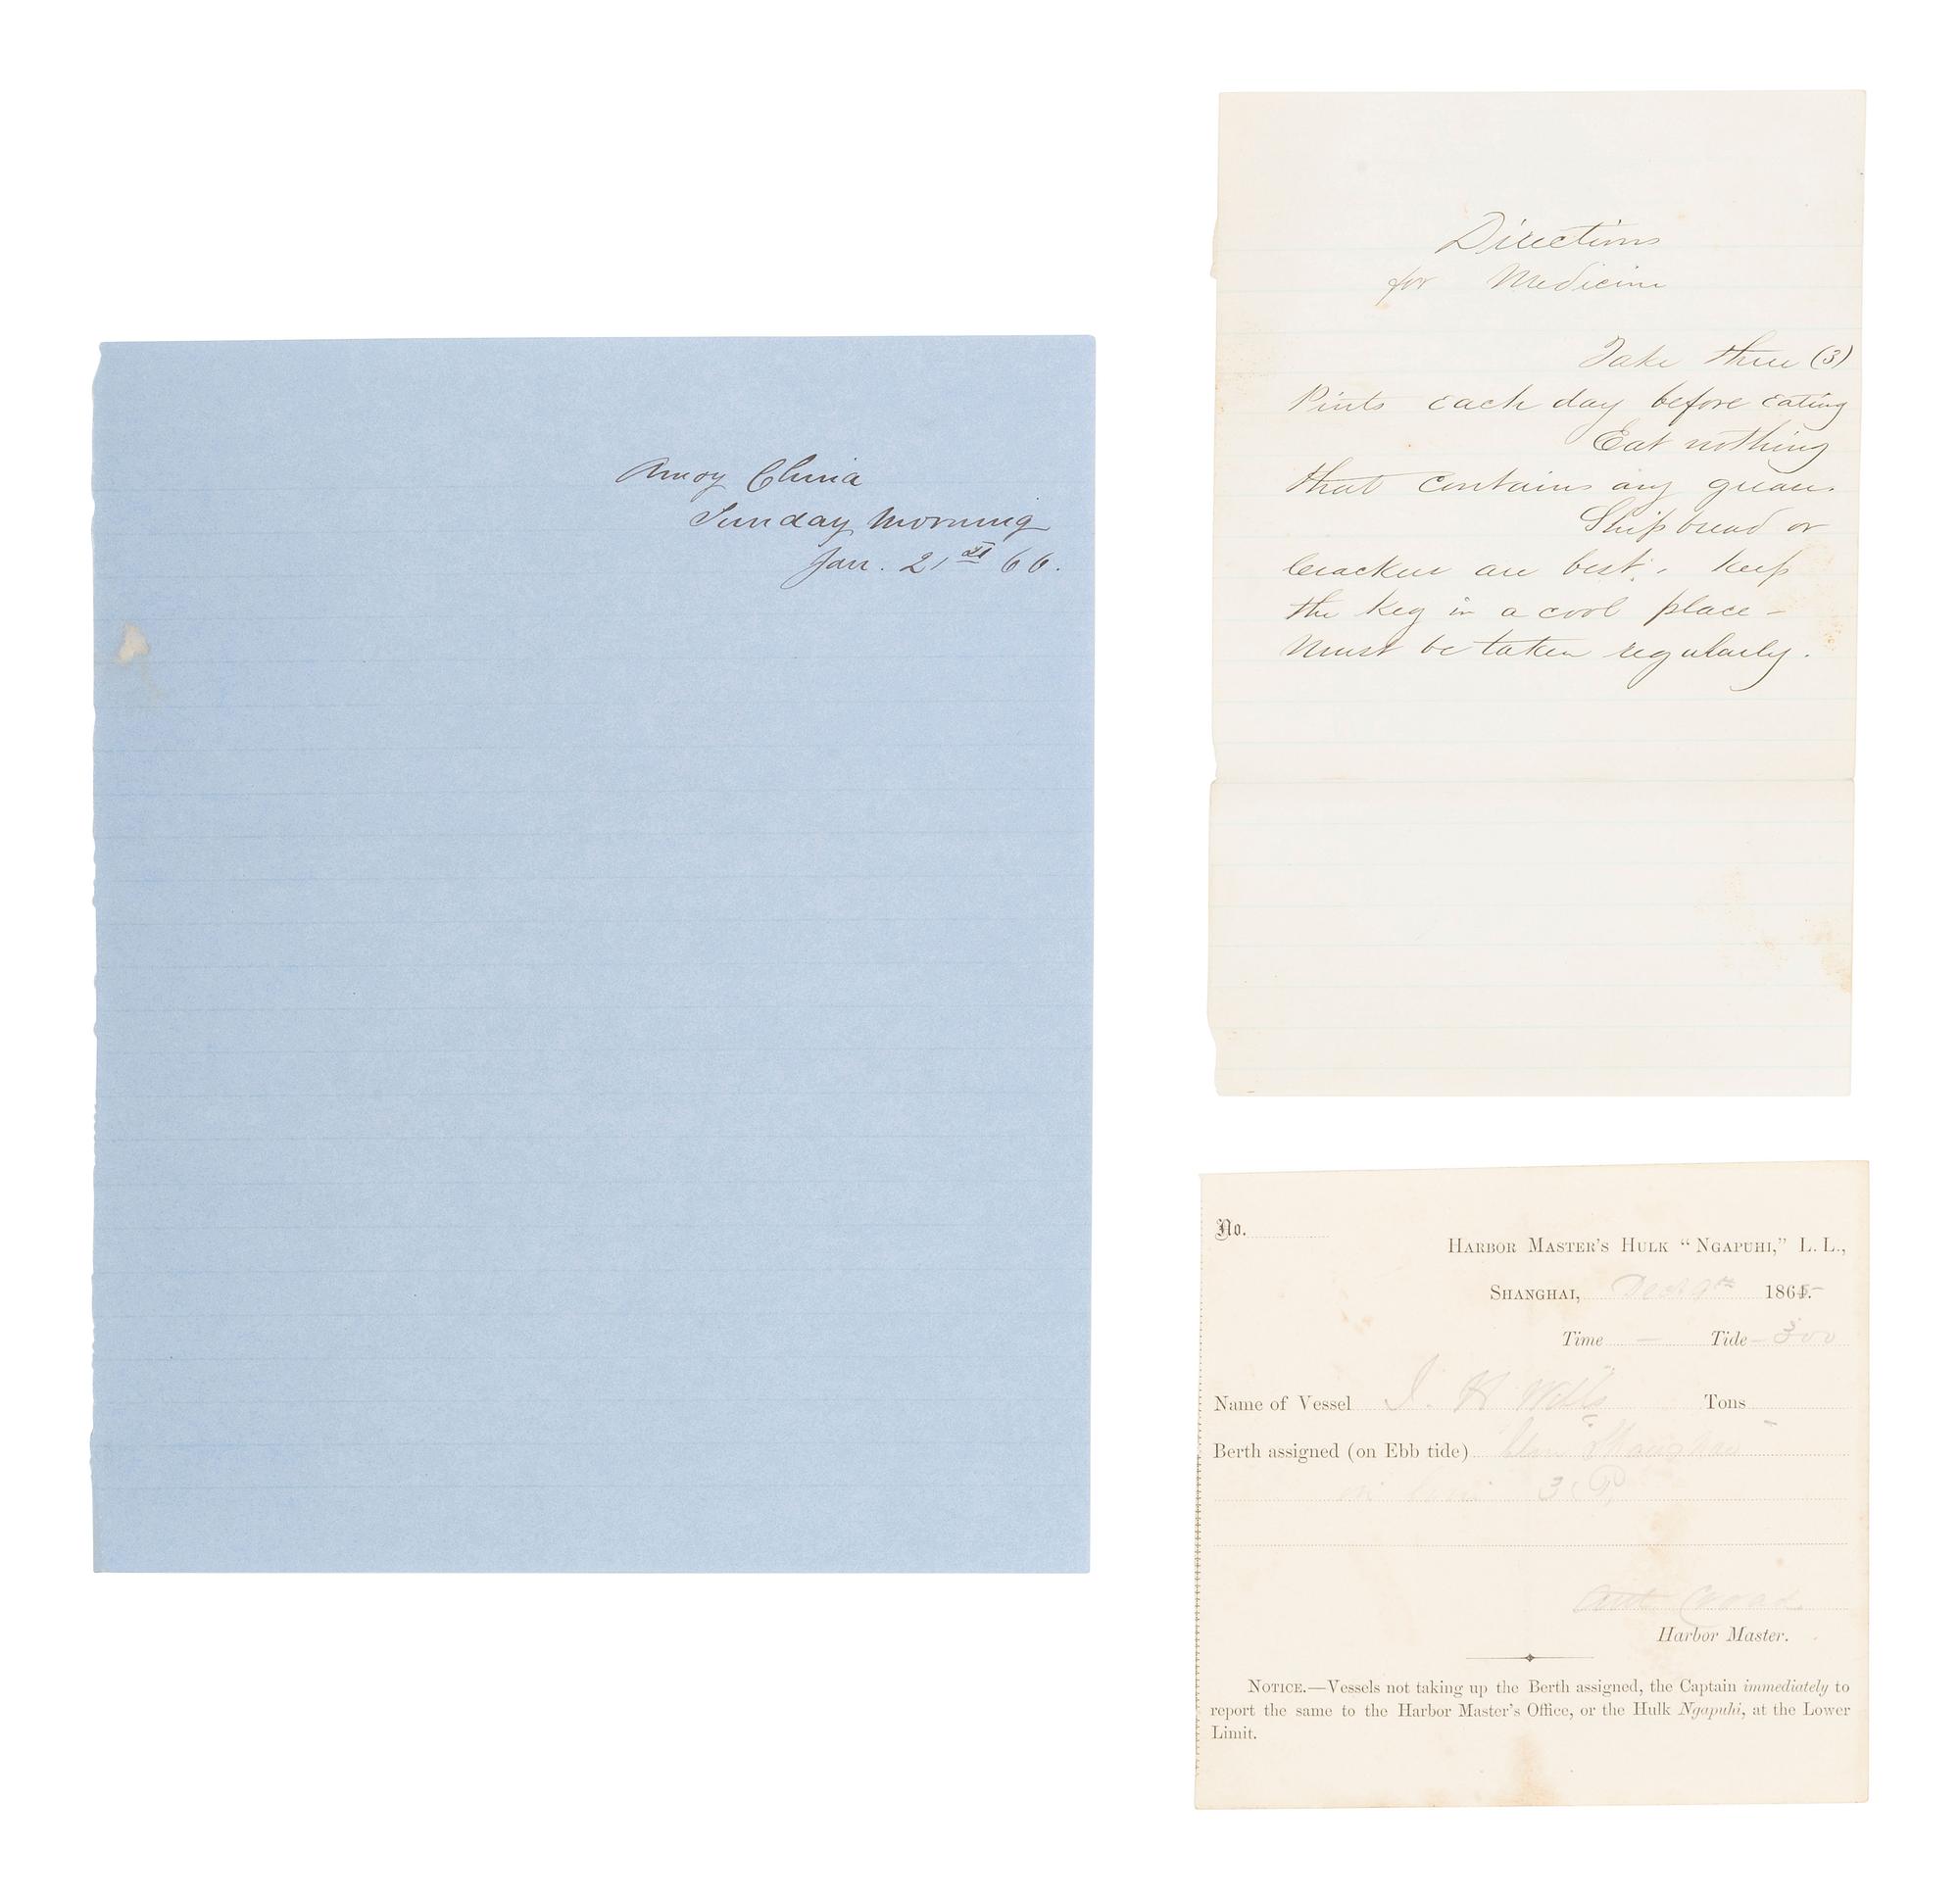 Amoy China
Sunday Morning
Jan. 21st 66.
Directions
for Medicine
Take three (3)
Pints each day before eating
Eat nothing
that contains any grease.
Ship bread or
Crackers are best. Keep
the keg in a cool place -
Must be taken regularly.
No.
HARBOR MASTER'S HULK "NGAPUHI," L. L.,
SHANGHAI, Dec 9th 1865
Time — Tide 300
Name of Vessel Tons
Berth assigned (on Ebb tide)
3
Harbor Master.
NOTICE.—Vessels not taking up the Berth assigned, the Captain immediately to
report the same to the Harbor Master's Office, or the Hulk Ngapuhi, at the Lower
Limit.